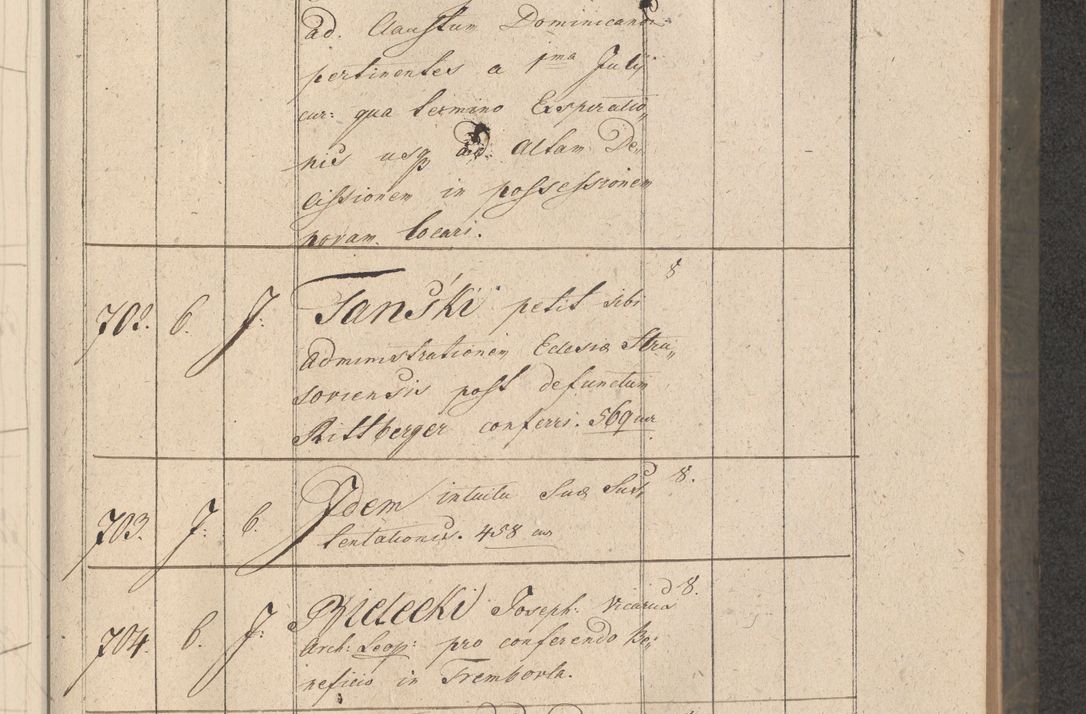 ad. Claustrum Dominicano
pertinentes a 1ma Julij
cur: qua termino Exspiratio„
nis usq ad. altam De„
cissionem in possessionem
novam locari.
8
702. 6. J: Tański petit sibi
administrationem Eclesiæ Stru„
soviensis post defunctum
Rittberger conferri. 569 cur
703. J: 6. Idem intuitu Suæ Sust„ 8.
tentationis. 458 cur
704. 6. J: Bielecki Joseph: Vicarius 8.
Arch: Leop: pro conferendo Be„
neficio in Trembovla.